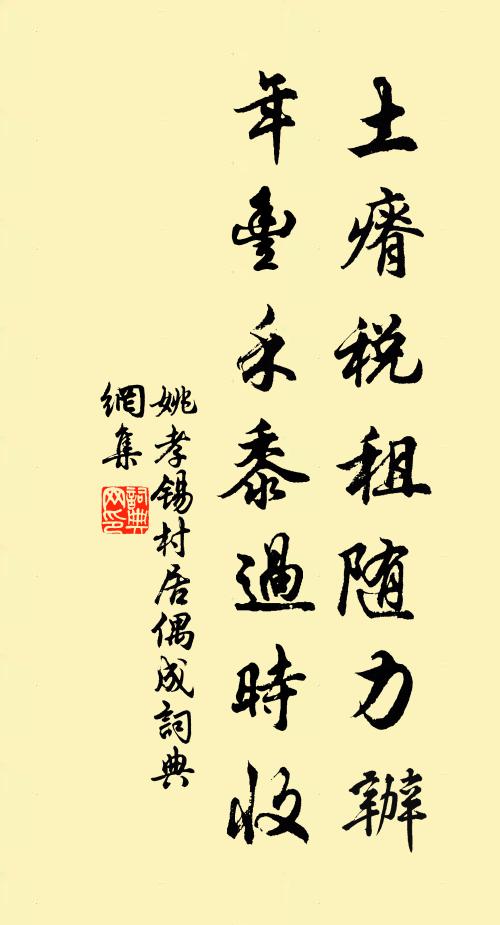 土瘠税租随力辦
年豐禾黍過時收
姚孝锡村居偶成詞典
網集
詞典网印